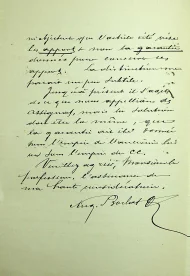 que l'article eût visé
les apports & non la garantie
donnée pour
apports. La distinction me
paraît un peu subtile.
Jusqu'à présent il s'agit
de ce que nous appellions des
mais la solution
doit être la même, que
la garantie ait été donnée
sous l'empire de l'ancienne loi
ou sous l'empire du CC.
Veuillez agréer, Monsieur le
professeur, l'assurance de
ma haute considération.
Aug.